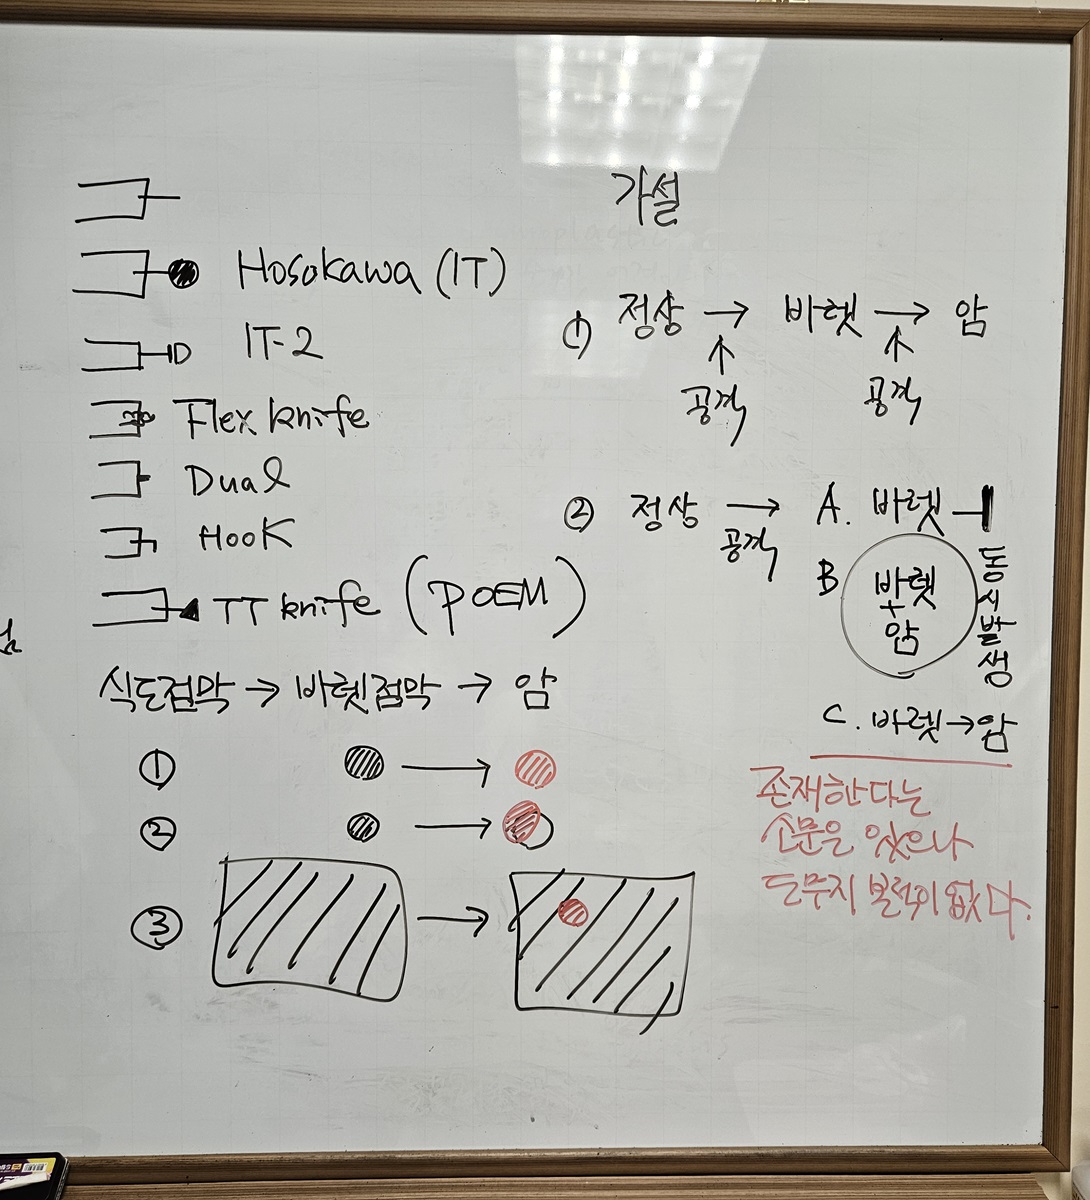 Hosokawa (IT)
IT-2
Flex knife
Dual
Hook
TT knife (POEM)
식도점막 → 바렛점막 → 암
①
②
③
가설
① 정상 → 바렛 → 암
↑ ↑
공격 공격
② 정상 → A. 바렛
공격
B 바렛
+
암
동시발생
C. 바렛→암
존재한다는
소문은 있으나
도무지 본적이 없다.